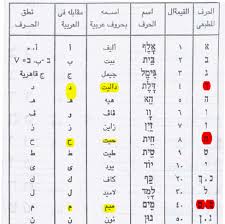 الحرف المطبعي القيمة ال اسم الحرف اسمه بحروف عربية مقابله في العربية نطق الحرف
א ١ אָלֶף أليف أ أ.ء
ב ٢ בֵּית بيت ب V =
ג ٣ גִּימֶל جيمل ج ج قاهرية
٤ דָּלֶת داليت د د
ה ٥ הֵא هيه ه ه
ו ٦ וָו و
ז ٧ זַיִן زاين ز ز
٨ חֵית حيت ح ح
ט ٩ טֵית طيت ط ط
י ١٠ יוֹד يود ي ي
כ ، ך ٢٠ כָּף كاف ك
ל ٣٠ לָמֶד لامد ل ل
٤٠ מֵם ميم م م
נ ، ן ٥٠ נוּן نون ن ن